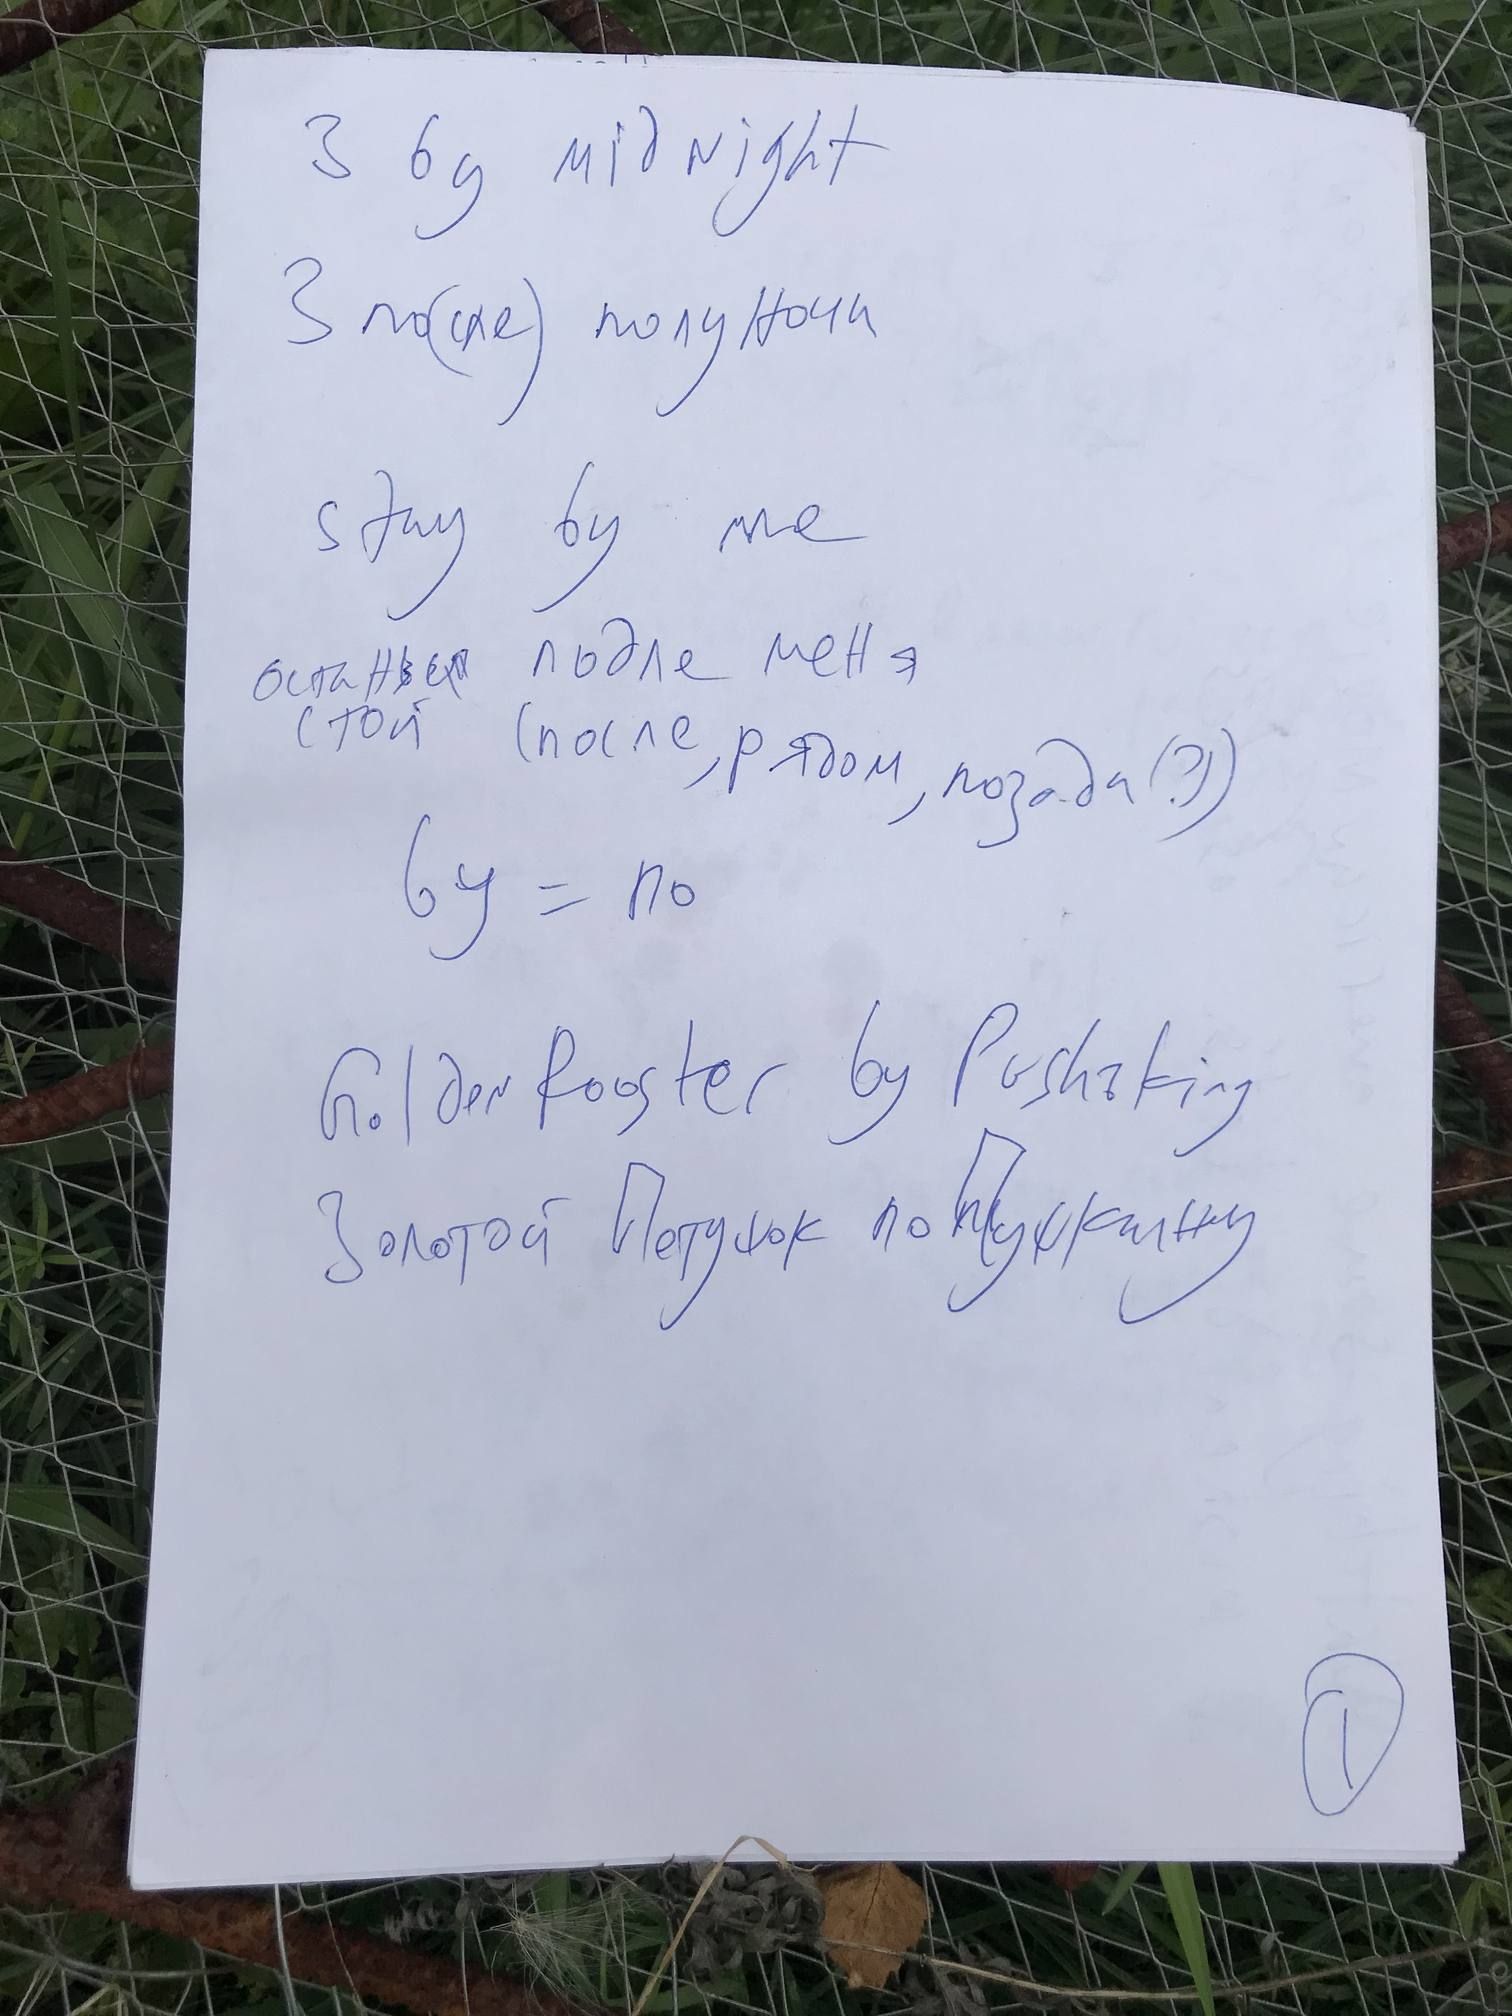 3 by midnight
3 по(сле) полуночи
stay by me
останься подле меня
стой (после, рядом, позади(?))
by = по
Golden Rooster by Pushking
Золотой Петушок по Пушкину
1